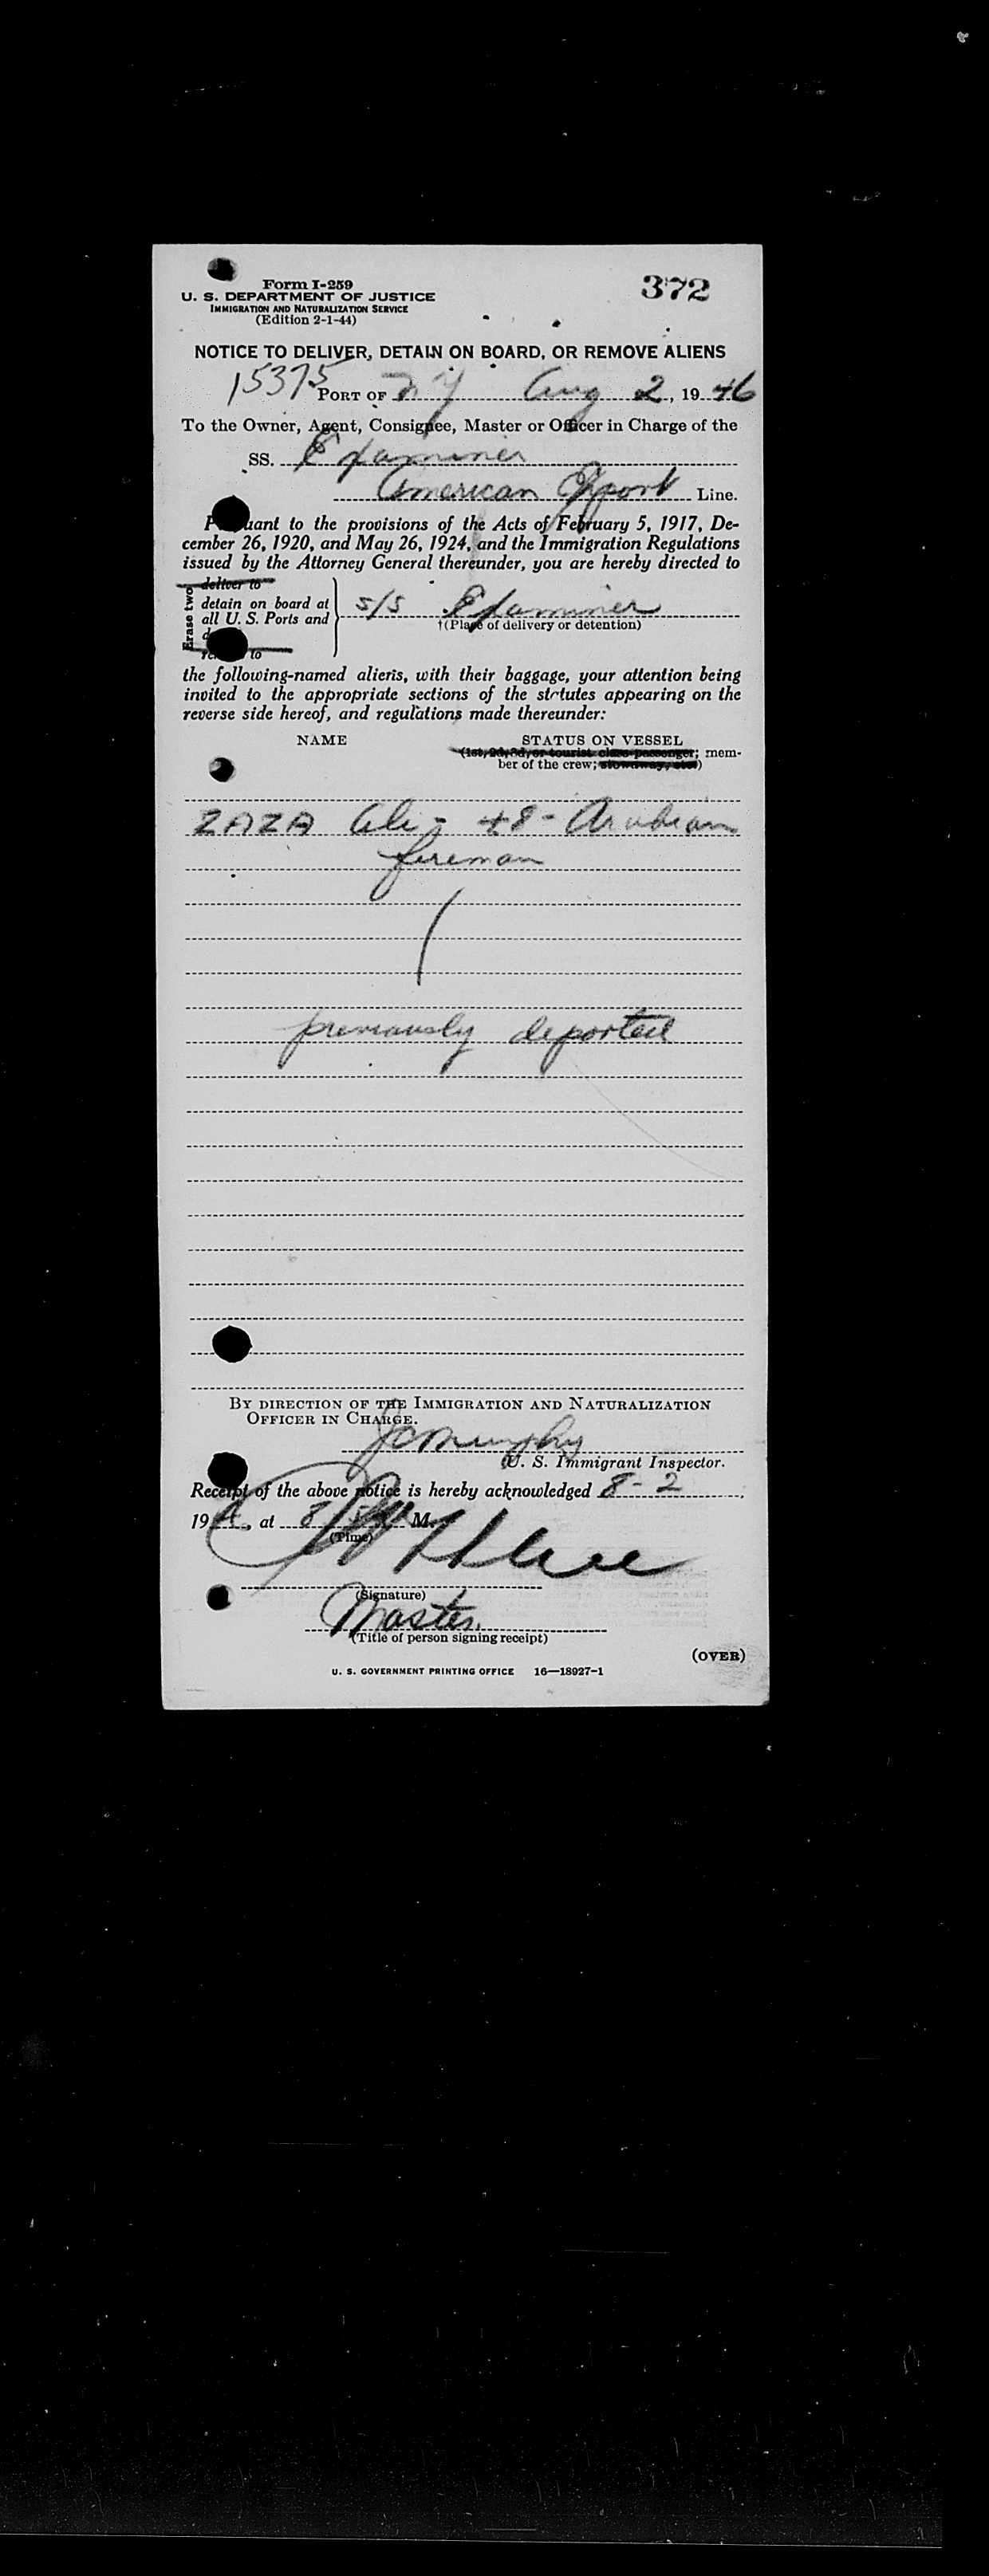 Form I-259
372
U. S. DEPARTMENT OF JUSTICE
IMMIGRATION AND NATURALIZATION SERVICE
(Edition 2-1-44)
NOTICE TO DELIVER, DETAIN ON BOARD, OR REMOVE ALIENS
15375 PORT OF N Y Aug 2, 1946
To the Owner, Agent, Consignee, Master or Officer in Charge of the
SS. Examiner
American Export Line.
Pursuant to the provisions of the Acts of February 5, 1917, De-
cember 26, 1920, and May 26, 1924, and the Immigration Regulations
issued by the Attorney General thereunder, you are hereby directed to
Erase two
deliver to
detain on board at
all U. S. Ports and
to
S/S Examiner
†(Place of delivery or detention)
the following-named aliens, with their baggage, your attention being
invited to the appropriate sections of the statutes appearing on the
reverse side hereof, and regulations made thereunder:
NAME STATUS ON VESSEL
(1st, 2d, 3d, or tourist class passenger; mem-
ber of the crew; stowaway, etc.)
ZAZA Ali - 48 - Arabian
fireman
previously deported
BY DIRECTION OF THE IMMIGRATION AND NATURALIZATION
OFFICER IN CHARGE.
JC Murphy
U. S. Immigrant Inspector.
Receipt of the above notice is hereby acknowledged 8-2,
19, at 8 M.
(Time)
(Signature)
Master.
(Title of person signing receipt)
(OVER)
U. S. GOVERNMENT PRINTING OFFICE 16—18927-1